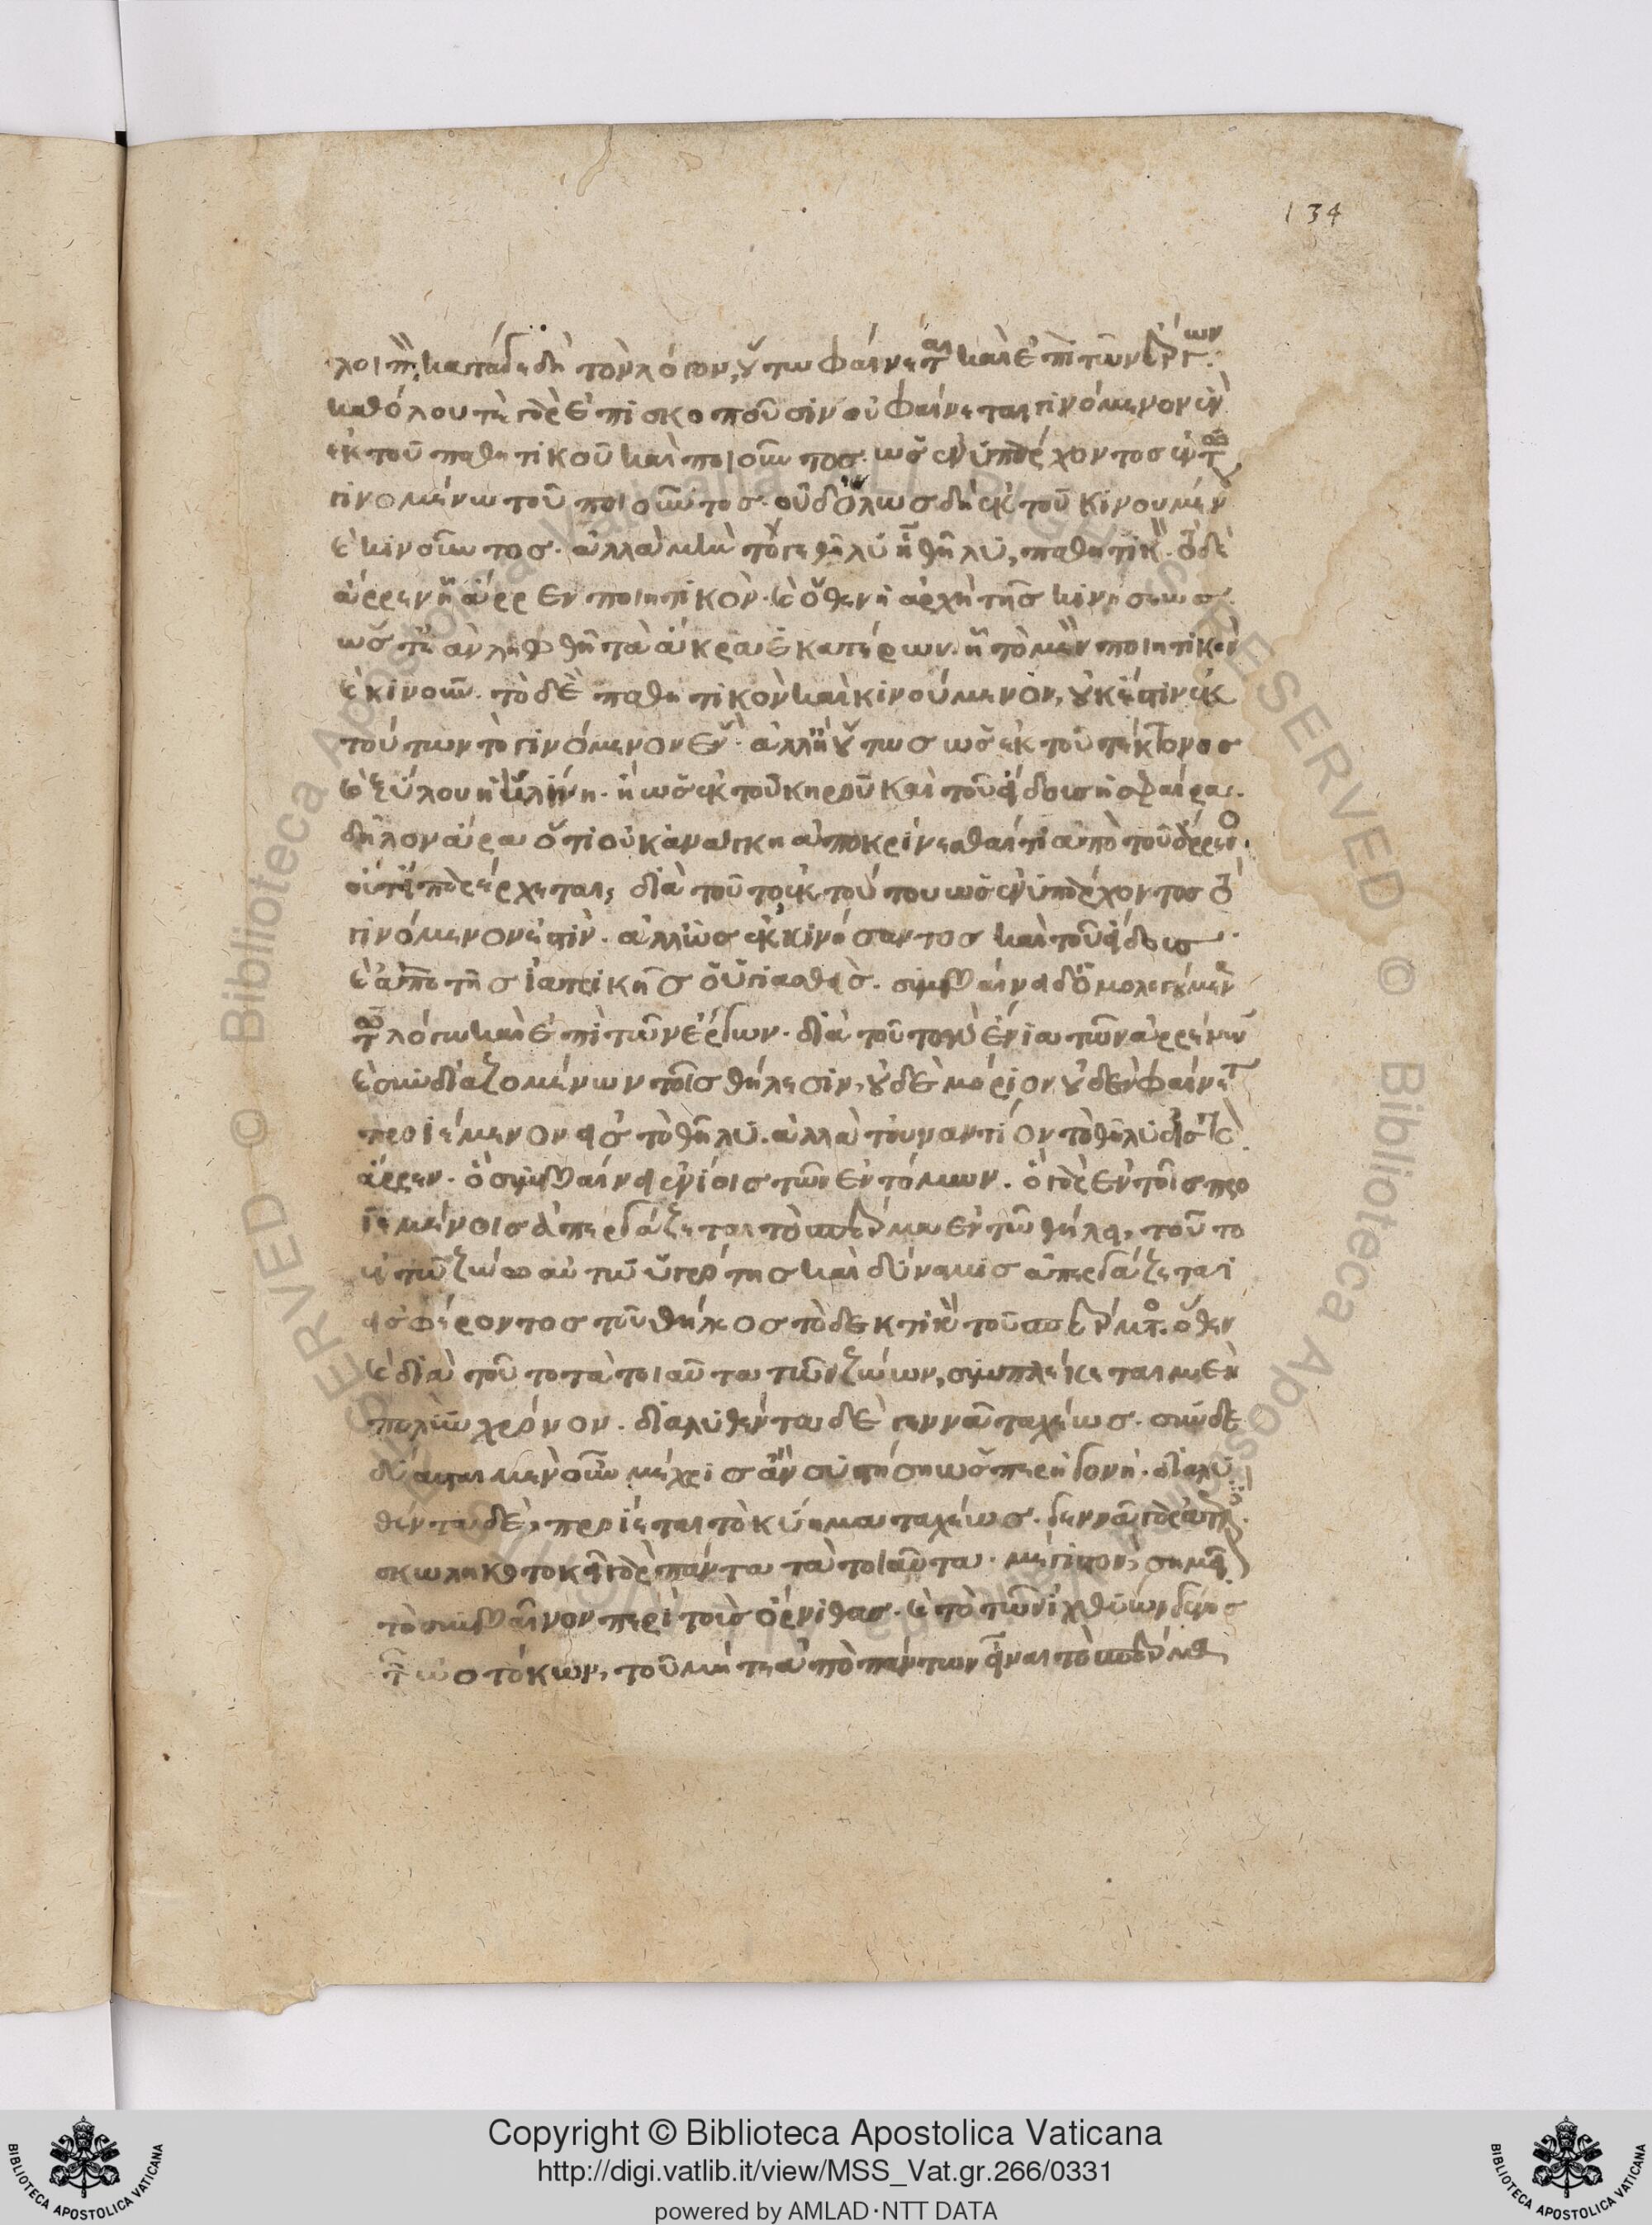 134
λοιπὸν κατά γε δὴ τὸν λόγον, οὕτω φαίνεται καὶ ἐπὶ τῶν ἔργων.
καθόλου τε γὰρ ἐπισκοποῦσιν οὐ φαίνεται γινόμενον ἓν
ἐκ τοῦ παθητικοῦ καὶ ποιοῦντος. ὡς ἐνυπάρχοντος ἐν τῶ
γινομένω τοῦ ποιοῦντος. οὐδ' ὅλως δὴ ἐκ τοῦ κινουμένου
καὶ κινοῦντος. ἀλλὰ μὴν τό γε θῆλυ ἧ θῆλυ, παθητικόν. τὸ δὲ
ἄρρεν ἧ ἄρρεν ποιητικὸν. καὶ ὅθεν ἡ ἀρχὴ τῆς κινήσεως.
ὥστε ἂν ληφθῆ τὰ ἄκρα ἑκατέρων. ἧ τὸ μὲν ποιητικὸν
καὶ κινοῦν. τὸ δὲ παθητικὸν καὶ κινούμενον, οὐκ ἔστιν ἐκ
τούτων τὸ γινόμενον ἕν. ἀλλ' ἢ οὕτως ὡς ἐκ τοῦ τέκτονος
καὶ ξύλου ἡ κλίνη. ἢ ὡς ἐκ τοῦ κηροῦ καὶ τοῦ εἴδους ἡ σφαῖρα.
δῆλον ἄρα ὅτι οὐκ ἀνάγκη ἀποκρίνεσθαί τι ἀπὸ τοῦ ἄρρενος.
οὔτ' εἴ τι ἀπέρχεται, διὰ τοῦτο ἐκ τούτου ὡς ἐνυπάρχοντος τὸ
γινόμενόν ἐστιν. ἀλλ' ὡς ἐκ κινήσαντος καὶ τοῦ εἴδους.
καὶ ἀπὸ τῆς ἰατρικῆς ὁ ὑγιασθεὶς. συμβαίνει δ' ὁμολογούμενα
τῶ λόγω καὶ ἐπὶ τῶν ἔργων. διὰ τοῦτο γὰρ ἔνια τῶν ἀρρένων
καὶ συνδυαζομένων τοῖς θήλεσιν, οὐδὲ μόριον οὐδὲν φαίνεται
προϊέμενον εἰς τὸ θῆλυ. ἀλλὰ τοὐναντίον τὸ θῆλυ εἰς τὸ
ἄρρεν. ὃ συμβαίνει ἐνίοις τῶν ἐντόμων. ὃ γὰρ ἐν τοῖς προ
ϊεμένοις ἀπεργάζεται τὸ σπέρμα ἐν τῶ θήλει, τοῦτο
ἐν τῶ ζώω αὐτῶ ὑγρότης καὶ δύναμις ἀπεργάζεται
εἰσφέροντος τοῦ θήλεος τὸ δεκτικὸν τοῦ σπέρματος. ὅθεν
καὶ διὰ τοῦτο τὰ τοιαῦτα τῶν ζώων, συμπλέκεται μὲν
πολὺν χρόνον. διαλυθέντα δὲ γεννᾶ ταχέως. συνδε
δύασται μὲν οὖν μέχρις ἂν συστήση ὥσπερ ἡ γονή. διαλυ
θέντα δὲ, προΐεται τὸ κύημα ταχέως. γεννᾶ γὰρ ἀτελές.
σκωληκοτοκεῖ γὰρ πάντα τὰ τοιαῦτα. μέγιστον, σημεῖον
τὸ συμβαῖνον περὶ τοὺς ὄρνιθας. καὶ τὸ τῶν ἰχθύων γένος
τῶν ὠοτόκων, τοῦ μήτε ἀπὸ πάντων εἶναι τὸ σπέρμα,
Copyright © Biblioteca Apostolica Vaticana
http://digi.vatlib.it/view/MSS_Vat.gr.266/0331
powered by AMLAD·NTT DATA